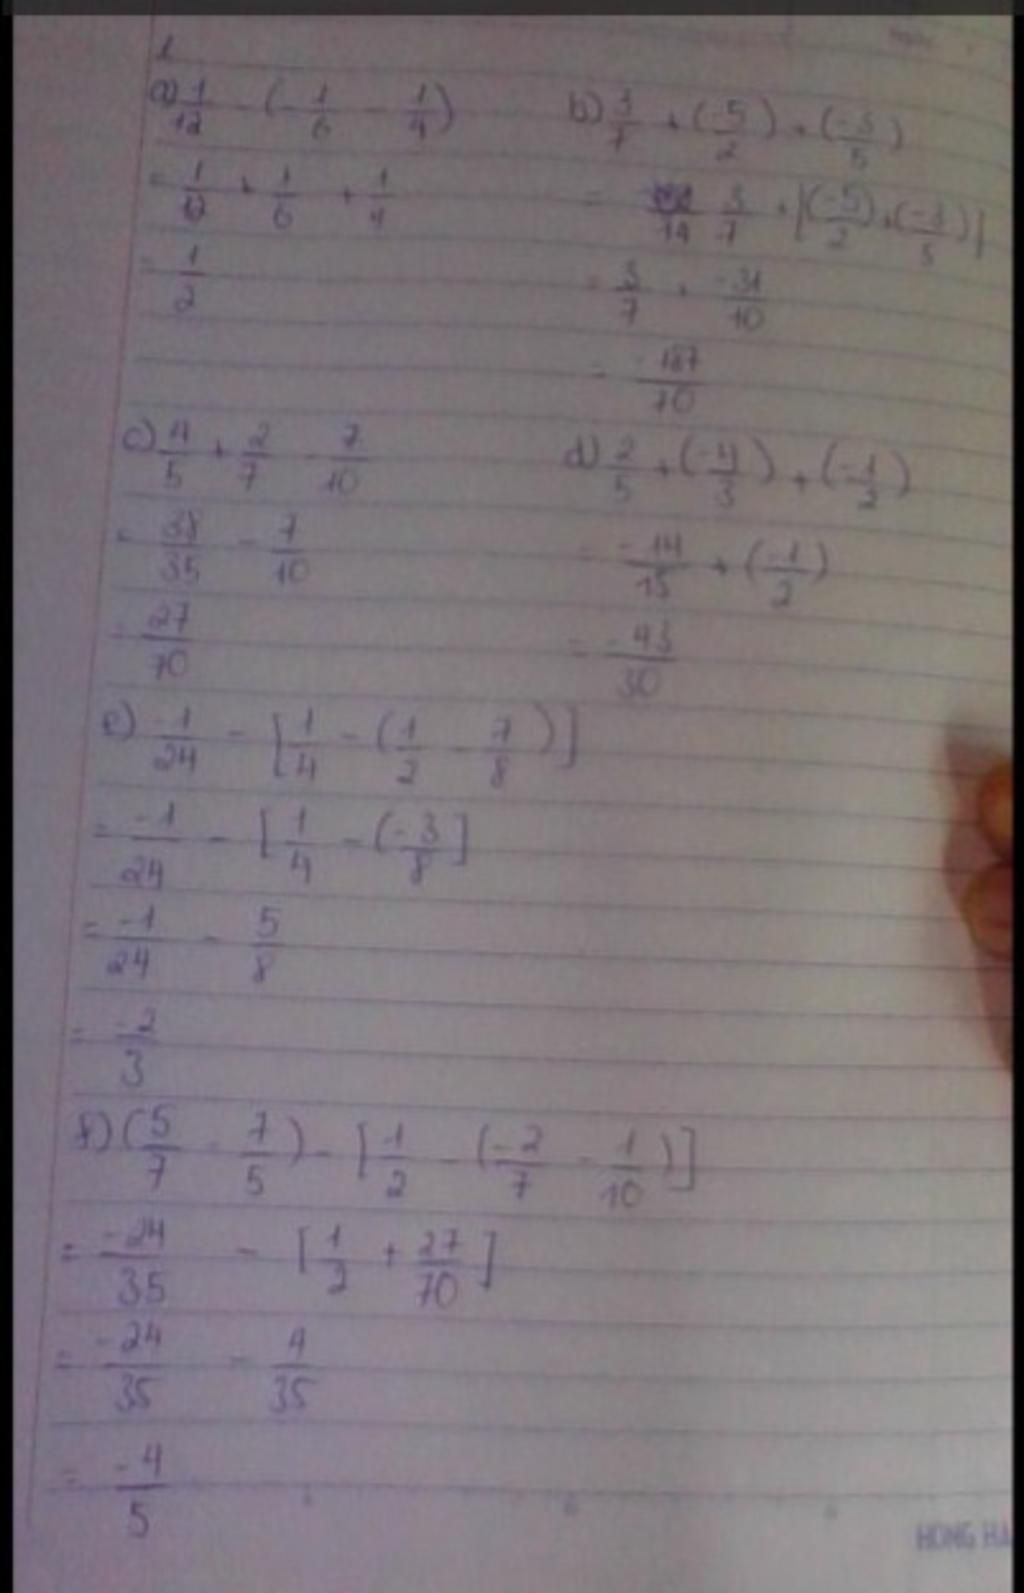 1
a) 1/12 - (-1/6 - 1/4)
= 1/12 + 1/6 + 1/4
= 1/2
b) 3/7 + (-5/2) + (-3/5)
= 3/7 + [(-5/2) + (-3/5)]
= 3/7 + -31/10
= -187/70
c) 4/5 + 2/7 - 7/10
= 38/35 - 7/10
= 27/70
d) 2/5 + (-4/3) + (-1/2)
= -14/15 + (-1/2)
= -43/30
e) -1/24 - [1/4 - (1/2 - 7/8)]
= -1/24 - [1/4 - (-3/8]
= -1/24 - 5/8
= -2/3
f) (5/7 - 7/5) - [1/2 - (-2/7 - 1/10)]
= -24/35 - [1/2 + 27/70]
= -24/35 - 4/35
= -4/5
HONG HA